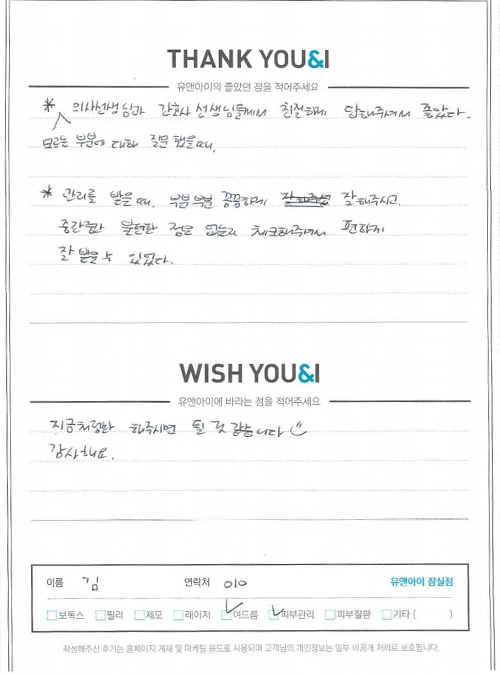 THANK YOU&I
유앤아이의 좋았던 점을 적어주세요
* 의사선생님과 간호사 선생님들께서 친절하게 답해주셔서 좋았다.
모르는 부분에 대해 질문 했을때,
* 관리를 받을 때, 부분부분 꼼꼼하게 잘해주시고
중간중간 불편한 점은 없는지 체크해주셔서 편하게
잘 받을 수 있었다.
WISH YOU&I
유앤아이에 바라는 점을 적어주세요
지금처럼만 해주시면 될 것 같습니다
감사해요.
이름 김 연락처 010 유앤아이 잠실점
보톡스 필러 제모 레이저 여드름 피부관리 피부질환 기타 ( )
작성해주신 후기는 홈페이지 게재 및 마케팅 용도로 사용되며 고객님의 개인정보는 일부 비공개 처리로 보호됩니다.